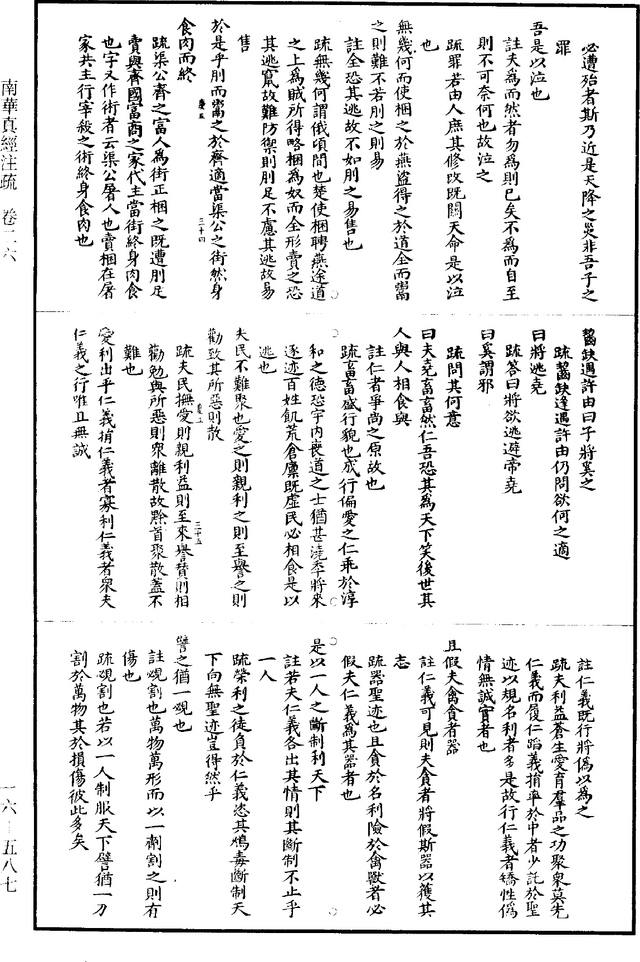 必遭殆者斯乃近是天降之災非吾子之
罪
吾是以泣也
註夫為而然者勿為則已矣不為而自至
則不可奈何也故泣之
疏罪若由人庶其修改既關天命是以泣
也
無幾何而使梱之於燕盜得之於道全而鬻
之則難不若刖之則易
註全恐其逃故不如刖之易售也
疏無幾何謂俄頃間也楚使梱聘燕途道
之上為賊所得略梱為奴而全形賣之恐
其逃竄故難防禦則刖足不慮其逃故易
售
於是乎刖而鬻之於齊適當渠公之街然身
食肉而終
疏渠公齊之富人為街正梱之既遭刖足
賣與齊國富商之家代主當街終身肉食
也字又作術者云渠公屠人也賣梱在屠
家共主行宰殺之術終身食肉也
齧缺遇許由曰子將奚之
疏齧缺逢遇許由仍問欲何之適
曰將逃堯
疏答曰將欲逃避帝堯
曰奚謂邪
疏問其何意
曰夫堯畜畜然仁吾恐其為天下笑後世其
人與人相食與
註仁者爭尚之原故也
疏畜畜盛行貌也盛行偏愛之仁乖於淳
和之德恐宇內喪道之士猶甚澆季將來
逐迹百姓飢荒倉廩既虛民必相食是以
逃也
夫民不難聚也愛之則親利之則至譽之則
勸致其所惡則散
疏夫民撫愛則親利益則至來譽贊則相
勸勉與所惡則衆離散故黔首聚散蓋不
難也
愛利出乎仁義捐仁義者寡利仁義者衆夫
仁義之行唯且無誠
註仁義既行將偽以為之
疏夫利益蒼生愛育羣品之功聚衆莫先
仁義而履仁蹈義捐率於中者少託於聖
迹以規名利者多是故行仁義者矯性偽
情無誠實者也
且假夫禽貪者器
註仁義可見則夫貪者將假斯器以獲其
志
疏器聖迹也且貪於名利險於禽獸者必
假夫仁義為其器者也
是以一人之斷制利天下
註若夫仁義各出其情則其斷制不止乎
一人
疏榮利之徒負於仁義恣其鴆毒斷制天
下向無聖迹豈得然乎
譬之猶一覕也
註覕割也萬物萬形而以一劑割之則有
傷也
疏覕割也若以一人制服天下譬猶一刀
割於萬物其於損傷彼此多矣
南華真經注疏 卷二六
一六—五八七
三十四
三十五